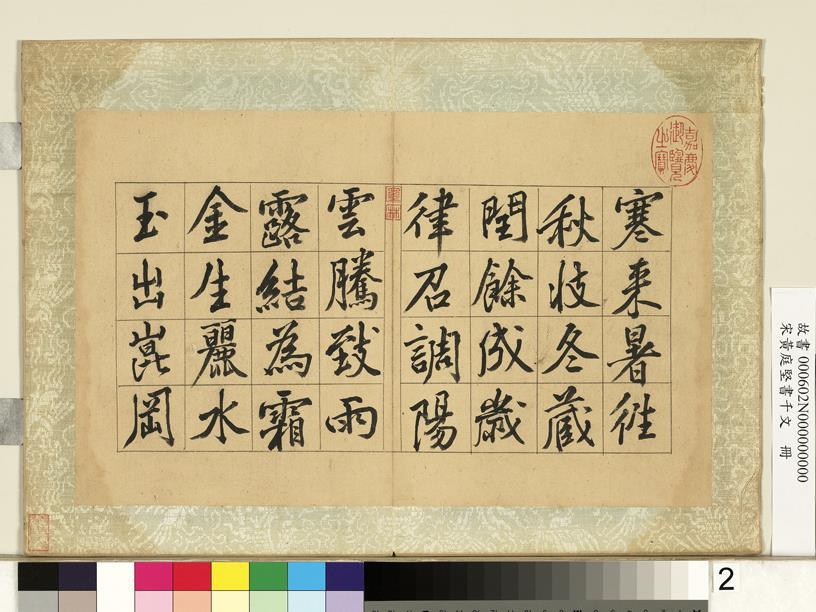 寒来暑往
秋收冬蔵
閏餘成歲
律召調陽
雲騰致雨
露結為霜
金生麗水
玉出崑岡
嘉慶御覽之寶
故書 000602N000000000
宋黃庭堅書千文 冊
2